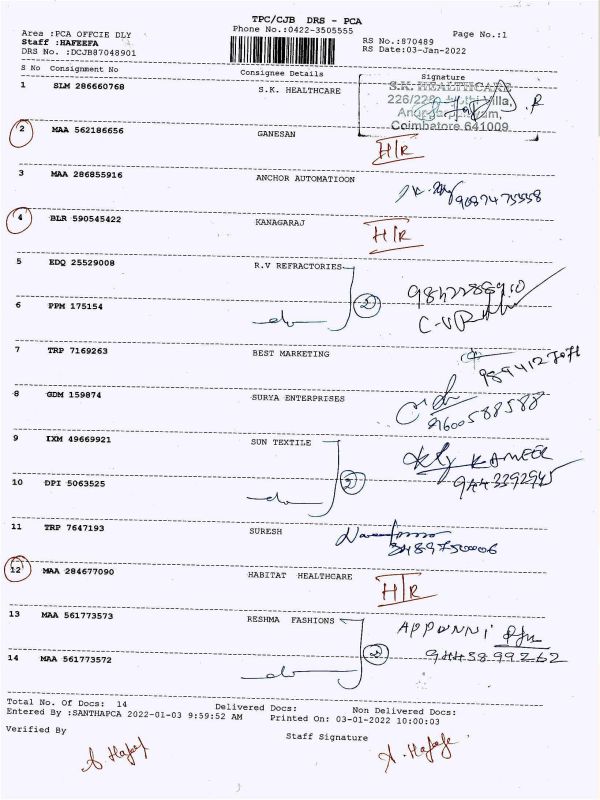 TPC/CJB DRS - PCA
Area :PCA OFFCIE DLY
Phone No.:0422-3505555
Page No.:1
Staff :HAFEEFA
RS No.:870489
DRS No. :DCJB87048901
RS Date:03-Jan-2022
S No Consignment No Consignee Details Signature
1 SLM 286660768 S.K. HEALTHCARE
S.K. HEALTHCARE
Villa,
Coimbatore 641009
2 MAA 562186656 GANESAN H/R
3 MAA 286855916 ANCHOR AUTOMATIOON 9087475558
4 BLR 590545422 KANAGARAJ H/R
5 EDQ 25529008 R.V REFRACTORIES
6 PPM 175154 do 2
7 TRP 7169263 BEST MARKETING
8 GDM 159874 SURYA ENTERPRISES 9600588588
9 IXM 49669921 SUN TEXTILE
10 DPI 5063525 do 2 9443392945
11 TRP 7647193 SURESH
12 MAA 284677090 HABITAT HEALTHCARE H/R
13 MAA 561773573 RESHMA FASHIONS APPUNNI
14 MAA 561773572 do 2 9443899262
Total No. Of Docs: 14 Delivered Docs: Non Delivered Docs:
Entered By :SANTHAPCA 2022-01-03 9:59:52 AM Printed On: 03-01-2022 10:00:03
Verified By Staff Signature